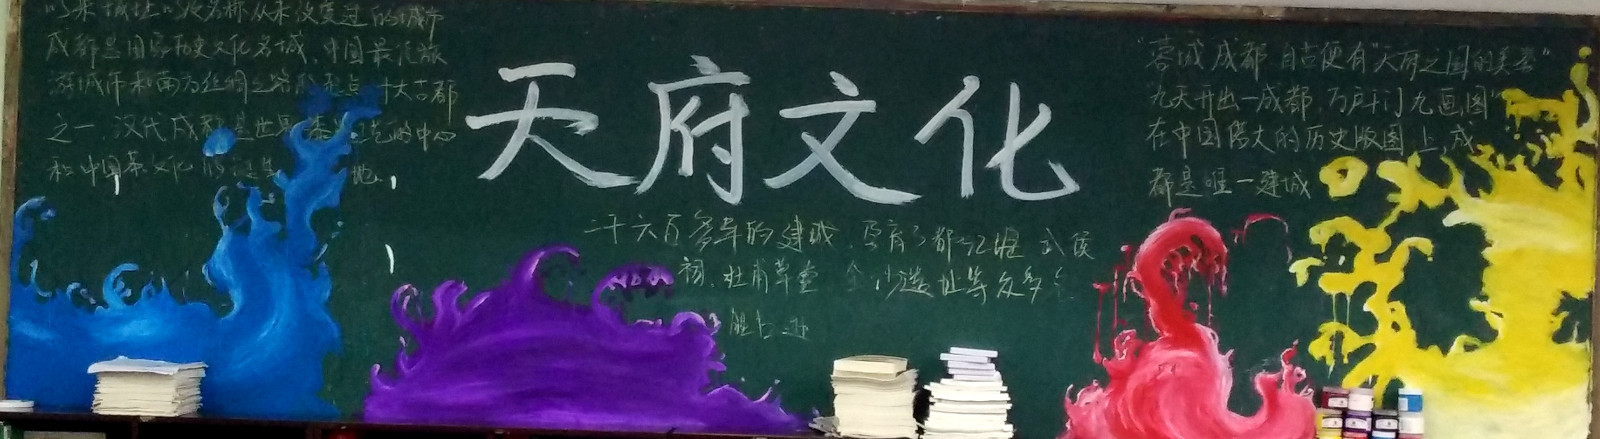 城址”及名称从未改变过的城市
成都是国家历史文化名城，中国最佳旅
游城市和南方丝绸之路的起点，十大古都
之一，汉代成都是世界茶文化的中心
和中国茶文化的诞生地。
天府文化
二千六百多年的建城，孕育了都江堰 武侯
祠、杜甫草堂 金沙遗址等众多名
胜古迹
“蓉城成都，自古便有“天府之国的美誉”
九天开出一成都，万户千门入画图”
在中国伟大的历史版图上，成
都是唯一建城